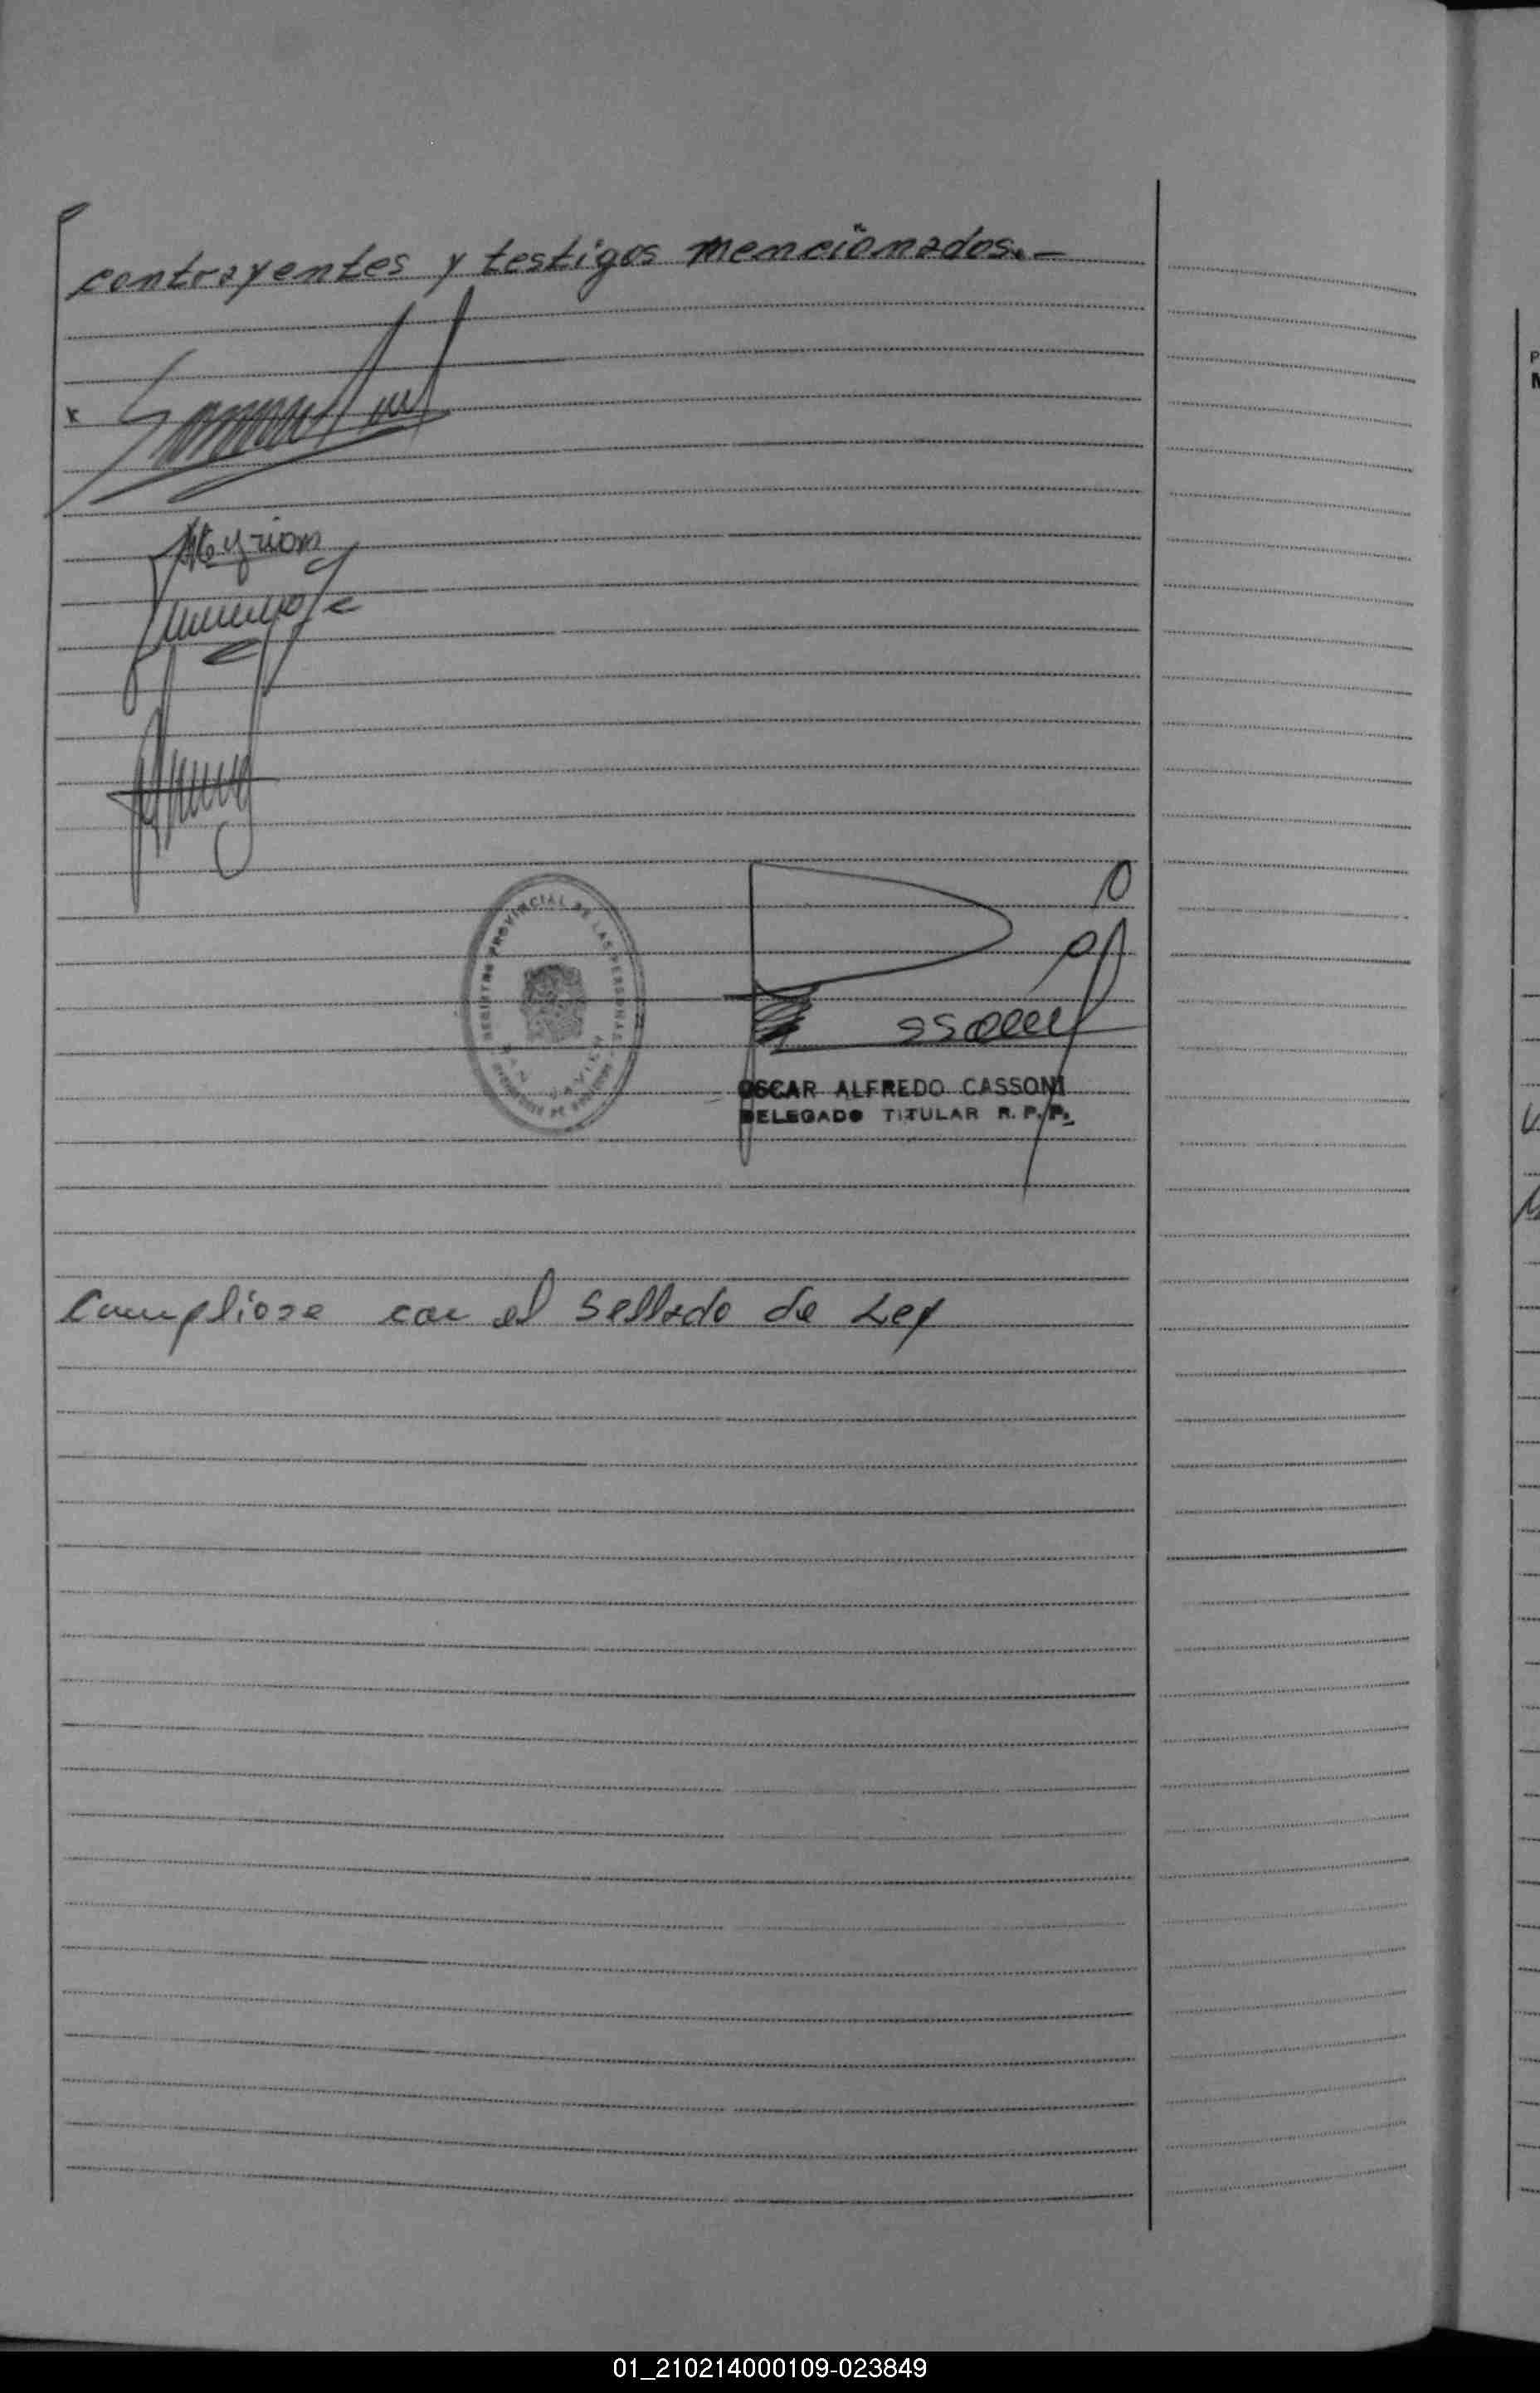 contrayentes y testigos mencionados.-
x
Myriam
REGISTRO PROVINCIAL DE LAS PERSONAS
SAN JAVIER
OSCAR ALFREDO CASSONI
DELEGADO TITULAR R. P. P.
Cumpliose con el Sellado de Ley
01_210214000109-023849